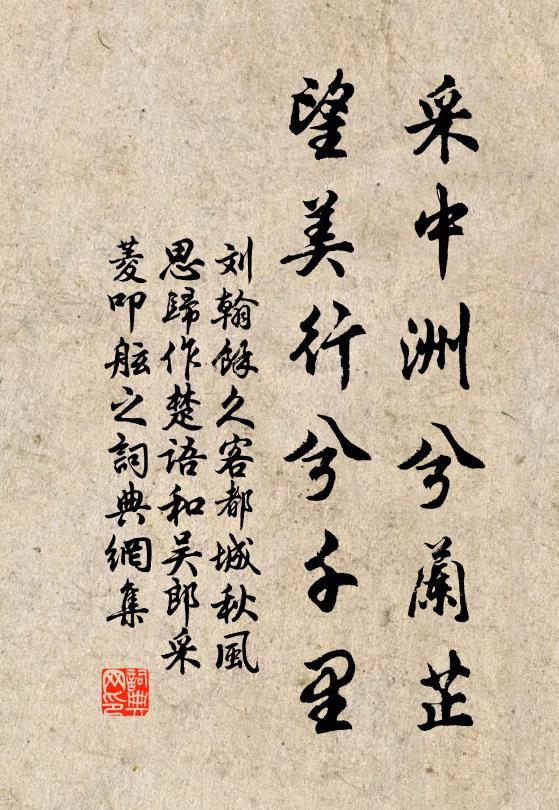 采中洲兮蘭芷
望美行兮千里
刘翰餘久客都城秋風
思歸作楚語和吴郎采
菱叩舷之詞典網集
詞典
网印